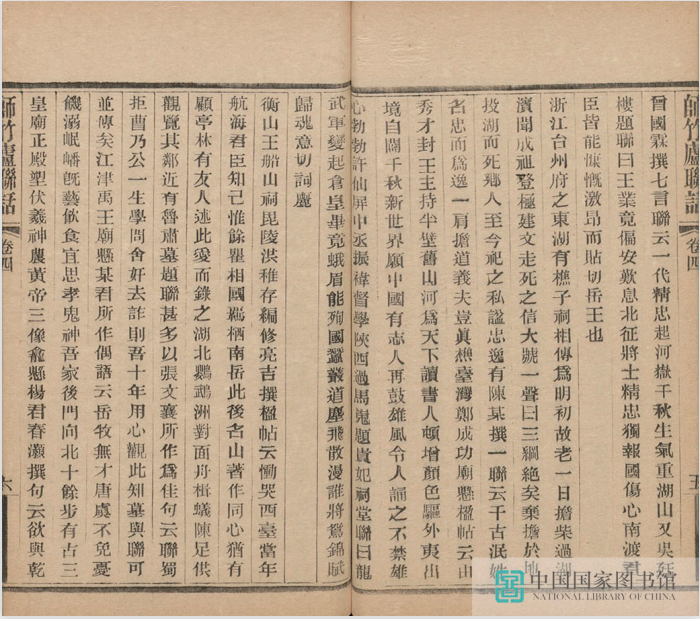 師竹廬聯話
卷四
五
曾國霖撰七言聯云一代精忠起河嶽千秋生氣重湖山又吳
樓題聯曰王業竟偏安歎息北征將士精忠獨報國傷心南渡君
臣皆能慷慨激昂而貼切岳王也
浙江台州府之東湖有樵子祠相傳爲明初故老一日擔柴過湖
濱聞成祖登極建文走死之信大號一聲曰三綱絶矣棄擔於地
投湖而死鄉人至今祀之私諡忠逸有陳某撰一聯云千古泯姓
名忠而爲逸一肩擔道義夫豈眞樵臺灣鄭成功廟懸楹帖云由
秀才封王主持半壁舊山河爲天下讀書人頓增顏色驅外夷出
境自闢千秋新世界願中國有志人再鼓雄風令人誦之不禁雄
心勃勃許仙屏中丞振禕督學陝西過馬嵬題貴妃祠堂聯曰龍
武軍變起倉皇畢竟蛾眉能殉國蠶叢道塵飛散漫誰將鴛錦賦
歸魂意切詞麗
衡山王船山祠毘陵洪稚存編修亮吉撰楹帖云慟哭西臺當年
航海君臣知己惟餘瞿相國羈栖南岳此後名山著作同心猶有
顧亭林有友人述此愛而錄之湖北鸚鵡洲對面舟楫蟻陳足供
觀覽其鄰近有魯肅墓題聯甚多以張文襄所作爲佳句云聯蜀
拒曹乃公一生學問舍奸去詐則吾十年用心觀此知墓與聯可
並傳矣江津禹王廟懸某君所作偶語云岳牧無才唐虞不免憂
饑溺岷嶓旣藝飲食宜思孝鬼神吾家後門向北十餘步有古三
皇廟正殿塑伏羲神農黃帝三像龕懸楊君春灝撰句云欲與乾
師竹廬聯話
卷四
六
中国国家图书馆
NATIONAL LIBRARY OF CHINA